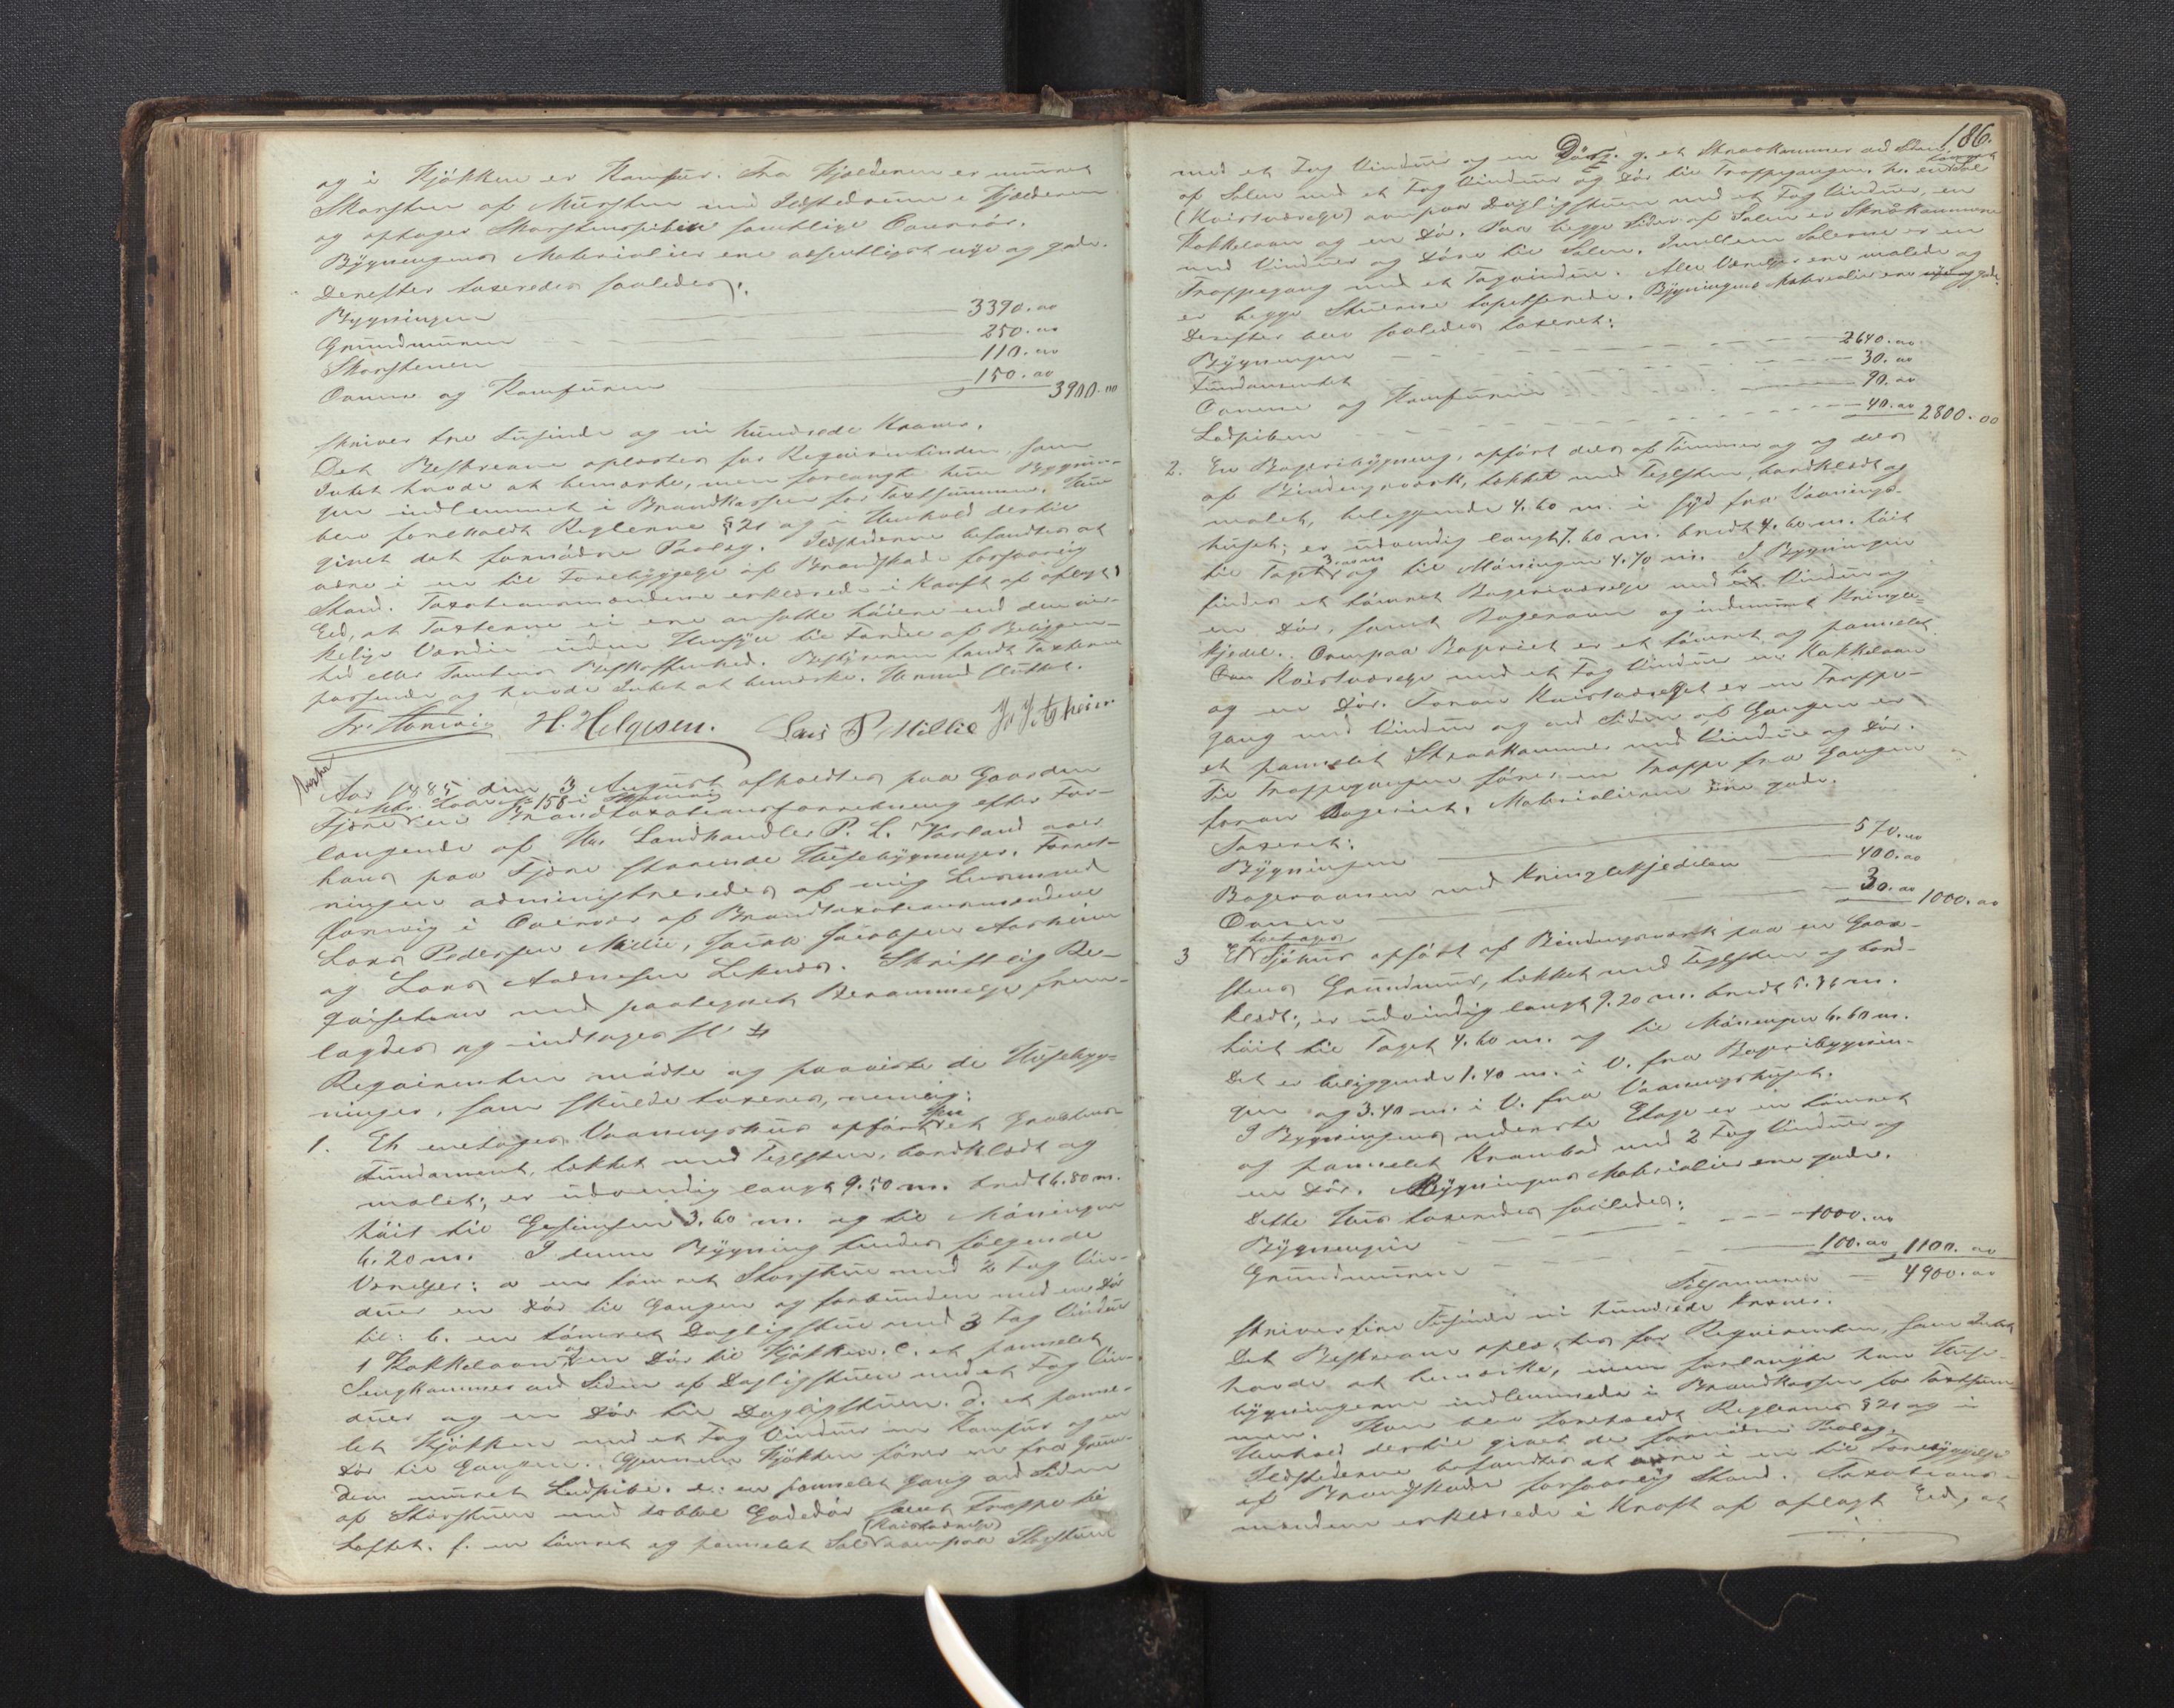 og i Kjøkken er Komfur. Fra Kjelderen er muret
Skorsten af Mursten med Ildstedsrum i Kjelderen
og optager Skorstenspiben samtlige Ovnrør.
Bygningens Materialier ere væsentligst nye og gode.
Derefter taxeredes saaledes:
Bygningen 3390.00
Grundmuren 250.00
Skorstenen 110.00
Ovnene og Komfuren 150.00 3900.00
skriver tre Tusinde og ni hundrede Kroner.
Det Beskrevne oplæstes for Reqvirentinden, som
Intet havde at bemærke, men forlangte hun Bygnin-
gen indlemmet i Brandkassen for Taxtsummen. Hun
blev foreholdt Reglerne § 21 og i Henhold dertil
givet det fornødne Paalæg. Ildstederne befandtes at
være i en til Forebyggelse af Brandskade forsvarlig
Stand. Taxationsmændene erklærede i Kraft af aflagt
Eed, at Taxterne ei ere ansatte høiere end den vir-
kelige Værdi uden Hensyn til Fordel af Beliggen-
hed eller Tomtens Beskaffenhed. Bestyreren fandt Taxterne
passende og havde Intet at bemærke. Hermed sluttet.
Fr. Hanwig H. Helgesen. Lars P. Millie J. J. Asheim
Aar 1885 den 3 August afholdtes paa Gaarden
Matr. Løbe No 158 i
Fjøre en Brandtaxationsforretning efter For-
langende af Hr. Landhandler P. L. Varland over
hans paa Fjøre staaende Husebygninger. Forret-
ningen administreredes af mig Lensmand
Hanwig i Overvær af Brandtaxationsmændene
Lars Pedersen Millie, Jacob Jacobsen Aasheim
og Lars Andersen Leknes. Skriftlig Re-
qvisition med paategnet Berammelse frem-
lagdes og indtages sl
Reqvirenten mødte og paaviste de Husebyg-
ninger, som skulde taxeres, nemlig:
1. Et eenetages Vaaningshus opført paa et Graastens
Fundament, tækket med Teglsten, bordklædt og
malet; er udvendig langt 9.50 m. bredt 6.80 m.
høit til Gesimsen 3.60 m. og til Møningen
6.20 m. I denne Bygning findes følgende
Værelser: a en tømret Storstue med 2 Fag Vin-
duer en Dør til Gangen og forbunden med en Dør
til: b. en tømret Dagligstue med 3 Fag Vinduer
1 Kakkelovn og en Dør til Kjøkken. c. et pannelet
Sengkammer ved Siden af Dagligstuen med et Fag Vin-
duer og en Dør til Dagligstuen. d. et panne-
let Kjøkken med et Fag Vinduer en Komfur og en
Dør til Gangen. Gjennem Kjøkken fører en fra Grun-
den muret Lodpibe. e: en pannelet Gang ved Siden
af Storstuen med dobbel Gadedør samt Trappe til
Loftet. f. en tømret og pannelet Sal (Kvistværelse) ovenpaa Storstuen
186.
med et Fag Vinduer og en Dør. g. et Skraakammer ved Siden
af Salen med et Fag Vinduer og Dør til Trappegangen. h. en tømret Sal
(Kvistværelse) ovenpaa Dagligstuen med et Fag Vinduer, en
Kakkelovn og en Dør. Paa begge Sider af Salen er Skraakammere
med Vinduer og Døre til Salen. Imellem Salerne er en
Trappegang med et Tagvindue. Alle Værelser ere malede og
er begge Stuerne tapetserede. Bygningens Materialier ere nye og gode.
Derefter blev saaledes taxeret:
Bygningen 2640.00
Fundamentet 30.00
Ovnene og Komfuren 90.00
Lodpiben 40.00 2800.00
2. En Bageribygning, opført dels af Tømmer og og dels
af Bindingsværk, tækket med Teglsten, bordklædt og
malet, beliggende 4.60 m. i Syd fra Vaanings-
huset; er udvendig langt 7.60 m. bredt 4.60 m. høit
til Taget 3.00 m og til Møningen 4.70 m. I Bygningen
findes et tømret Bageriværelse med to Vinduer og
en Dør, samt Bagerovn og indmuret Kringle-
kjedel. Ovenpaa Bageriet er et tømret og pannelet
Kvistværelse med et Fag Vinduer en Kakkelovn
og en Dør. Foran Kvistværelset er en Trappe-
gang med Vindue og ved Siden af Gangen er
et pannelet Skraakammer med Vindue og Dør.
Til Trappegangen fører en Trappe fra Gangen
foran Bageriet. Materialierne ere gode.
Taxeret:
Bygningen 570.00
Bagerovnen med Kringlekjedelen 400.00
Ovnen 30.00 1000.00
3 Et toetages Sjøhus opført af Bindingsværk paa en Graa-
stens Grundmur, tækket med Teglsten og bord-
klædt; er udvendig langt 9.20 m. bredt 5.36 m.
høit til Taget 4.60 m. og til Møningen 6.60 m.
Det er beliggende 1.40 m. i V. fra Bageribygnin-
gen og 3.40 m. i V. fra Vaaningshuset.
I Bygningens nederste Etage er en tømret
og pannelet Krambod med 2 Fag Vinduer og
en Dør. Bygningens Materialier ere gode.
Dette Hus taxeredes saaledes:
Bygningen 1000.00
Grundmuren 100.00 1100.00
Tilsammen 4900.00
skriver fire Tusinde ni hundrede Kroner.
Det Beskrevne oplæstes for Reqvirenten, som Intet
havde at bemærke, men forlangte han Huse-
bygningerne indlemmede i Brandkassen for Taxtsum-
men. Han blev foreholdt Reglerne § 21 og i
Henhold dertil givet det fornødne Paalæg.
Ildstederne befandtes at være i en til Forebyggelse
af Brandskade forsvarlig Stand. Taxations-
mændene erklærede i Kraft af aflagt Eed, at